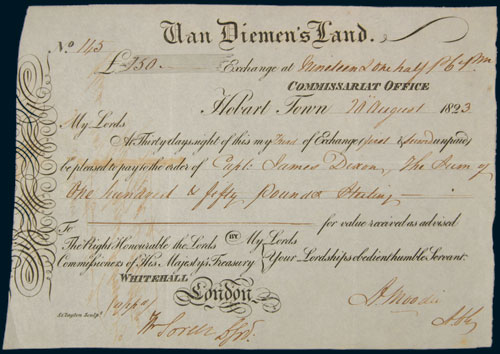 Van Diemen's Land.
No. 145
£150.— Exchange at Nineteen & one half P Ct Pm
COMMISSARIAT OFFICE
Hobart Town August 1823
My Lords
At Thirty days sight of this my Third of Exchange (first & second unpaid)
be pleased to pay to the order of Capt. James Dixon, The Sum of
One hundred & fifty Pounds Sterling
To for value received as advised
The Right Honourable the Lords BY My Lords
Commissioners of His Majesty's Treasury Your Lordships obedient humble Servant
WHITEHALL
London
A Moodie
Wm Sorell